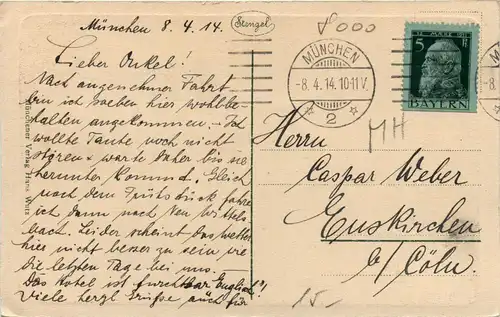 München 8. 4. 14.
Stengel
8000
MÜNCHEN
-8. 4. 14. 10-11 V.
2
5 Pf
BAYERN
-8.
Lieber Onkel!
Nach angenehmer Fahrt
bin ich soeben hier wohlbe-
halten angekommen. Ich
wollte Tante noch nicht
stören & warte daher bis sie
herunter kommt. Gleich
nach dem Frühstück fahre
ich dann nach Neu Wittels
bach. Leider scheint das Wetter
hier nicht besser zu sein wie
die letzten Tage bei uns.
Das Hotel ist furchtbar Englisch!
Viele herzl Grüsse auch für
Münchner Verlag Hans
MH
Herrn
Caspar Weber
Euskirchen
b/ Cöln.
15.-